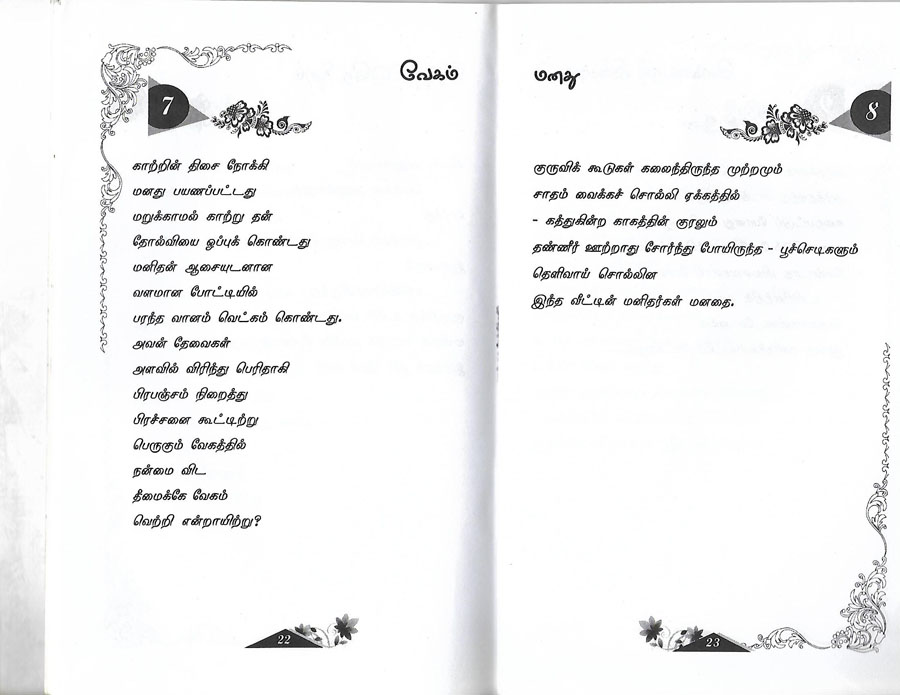 வேகம்
7
காற்றின் திசை நோக்கி
மனது பயணப்பட்டது
மறுக்காமல் காற்று தன்
தோல்வியை ஒப்புக் கொண்டது
மனிதன் ஆசையுடனான
வளமான போட்டியில்
பரந்த வானம் வெட்கம் கொண்டது.
அவன் தேவைகள்
அளவில் விரிந்து பெரிதாகி
பிரபஞ்சம் நிறைத்து
பிரச்சனை கூட்டிற்று
பெருகும் வேகத்தில்
நன்மை விட
தீமைக்கே வேகம்
வெற்றி என்றாயிற்று?
22
மனது
8
குருவிக் கூடுகள் கலைந்திருந்த முற்றமும்
சாதம் வைக்கச் சொல்லி ஏக்கத்தில்
- கத்துகின்ற காகத்தின் குரலும்
தண்ணீர் ஊற்றாது சோர்ந்து போயிருந்த - பூச்செடிகளும்
தெளிவாய் சொல்லின
இந்த வீட்டின் மனிதர்கள் மனதை.
23